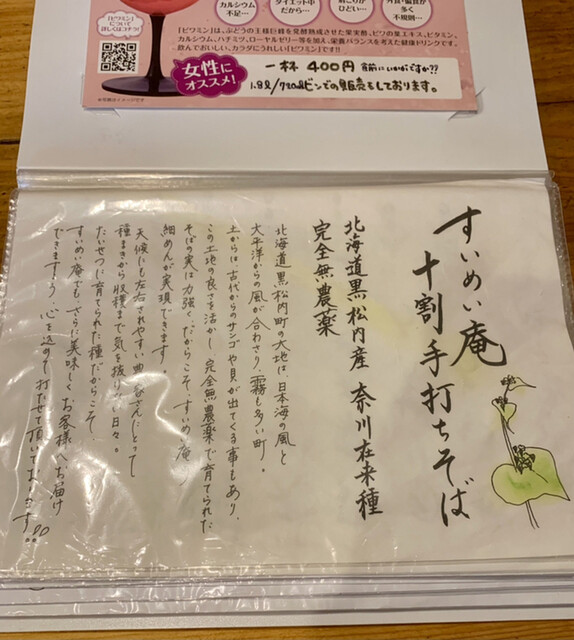 「ビワミン」
について
詳しくはコチラ!
カルシウム
不足…
ダイエット中
だから…
肩こりが
ひどい…
外食・偏食が
多く
不規則…
「ビワミン」は、ぶどうの王様巨峰を発酵熟成させた果実酢、ビワの葉エキス、ビタミン、
カルシウム、ハチミツ、ローヤルゼリー等を加え、栄養バランスを考えた健康ドリンクです。
飲んでおいしい、カラダにうれしい「ビワミン」です!!
女性に
オススメ!
一杯 400円 食前にいかがですか??
1.8ℓ/720mℓビンでの販売もしております。
※写真はイメージです
すいめい庵
十割手打ちそば
北海道黒松内産 奈川在来種
完全無農薬
北海道黒松内町の大地は、日本海の風と
太平洋からの風が合わさり、霧も多い町。
土からは古代からのサンゴや貝が出てくる事もあり、
この土地の良さを活かし、完全無農薬で育てられた
そばの実は力強く、だからこそ、すいめい庵
細めんが実現できます。
天候にも左右されやすい農家さんにとって
種まきから収穫まで気を抜けない日々。
たいせつに育てられた種だからこそ、
すいめい庵でも、さらに美味しくお客様へお届け
できますよう、心を込めて打たせて頂いております。